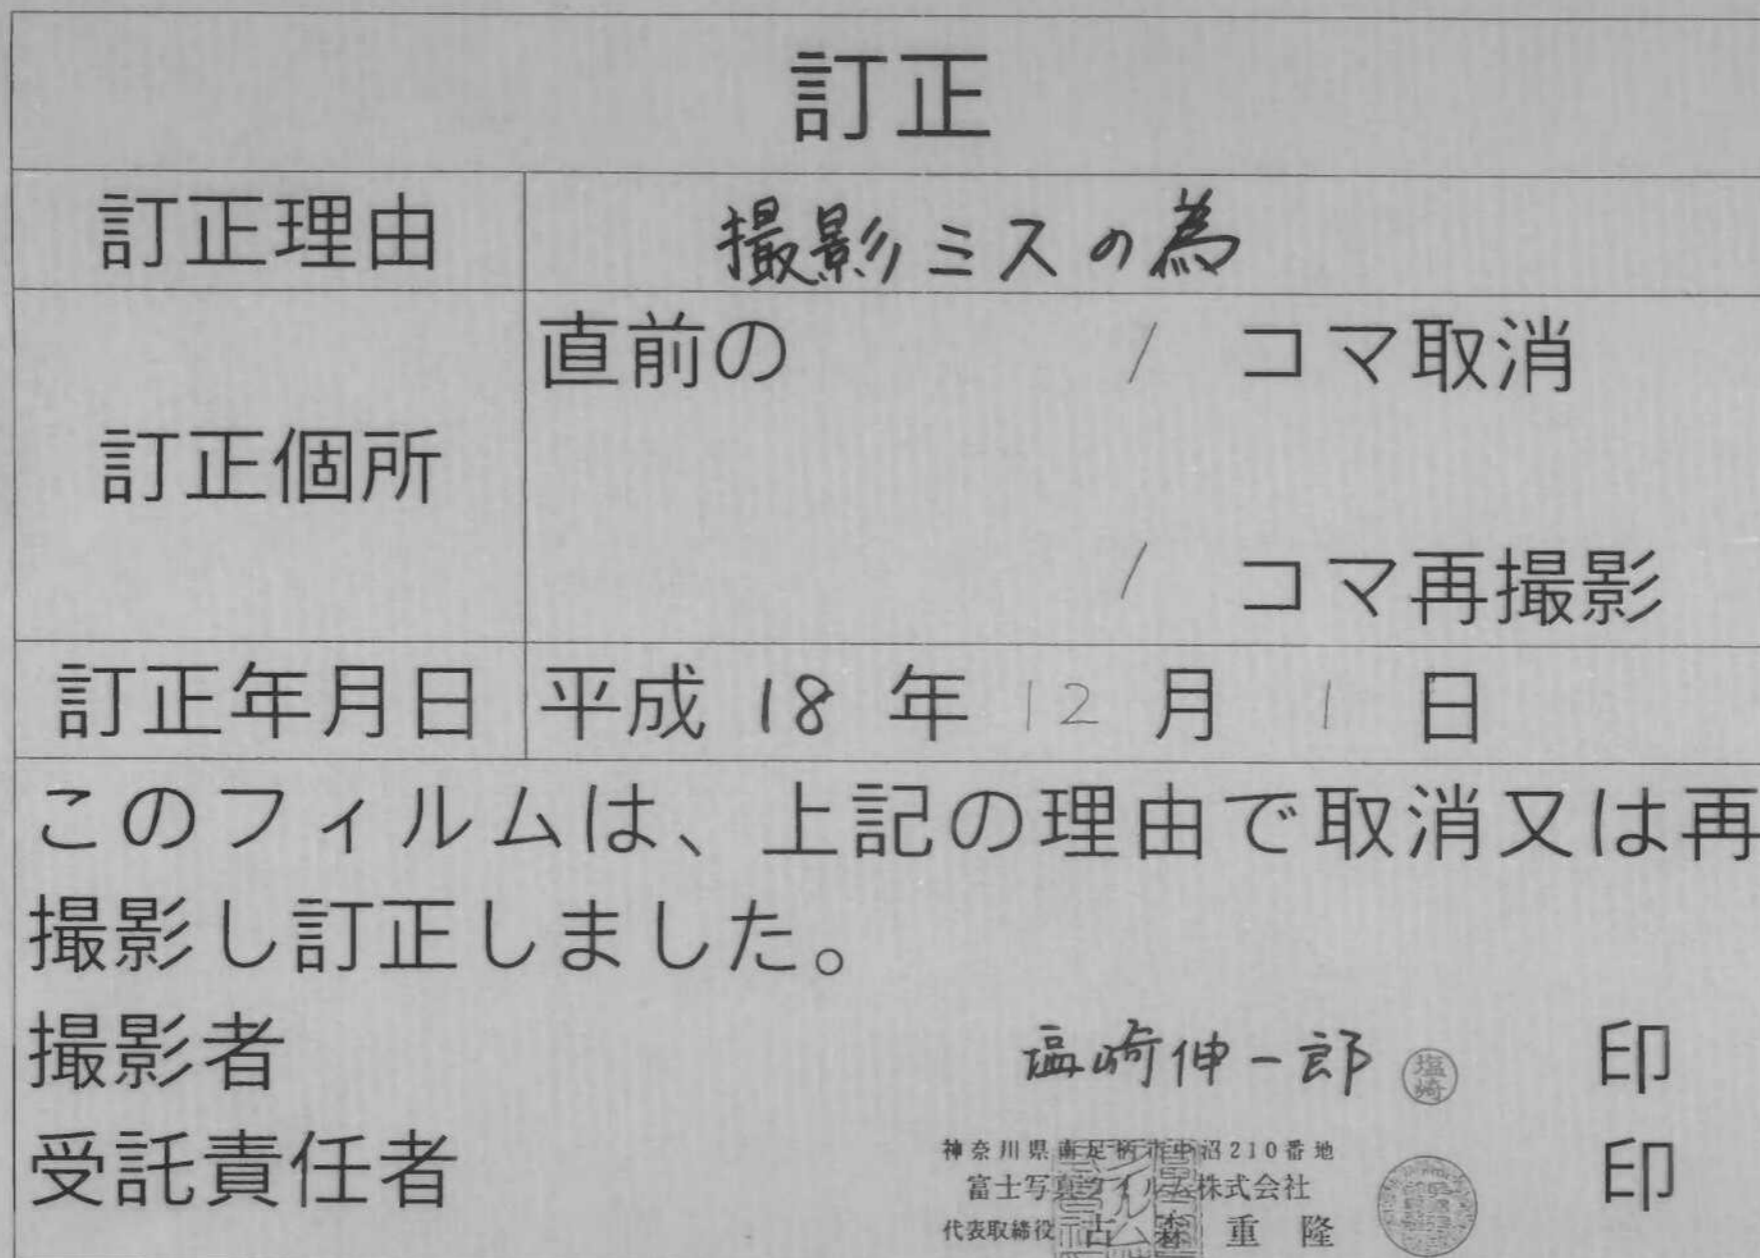 訂正
訂正理由 撮影ミスの為
訂正個所 直前の 1 コマ取消
1 コマ再撮影
訂正年月日 平成 18 年 12 月 1 日
このフィルムは、上記の理由で取消又は再
撮影し訂正しました。
撮影者 塩崎伸一郎 塩崎 印
受託責任者 印
神奈川県南足柄市中沼210番地
富士写真フイルム株式会社
代表取締役 古森重隆